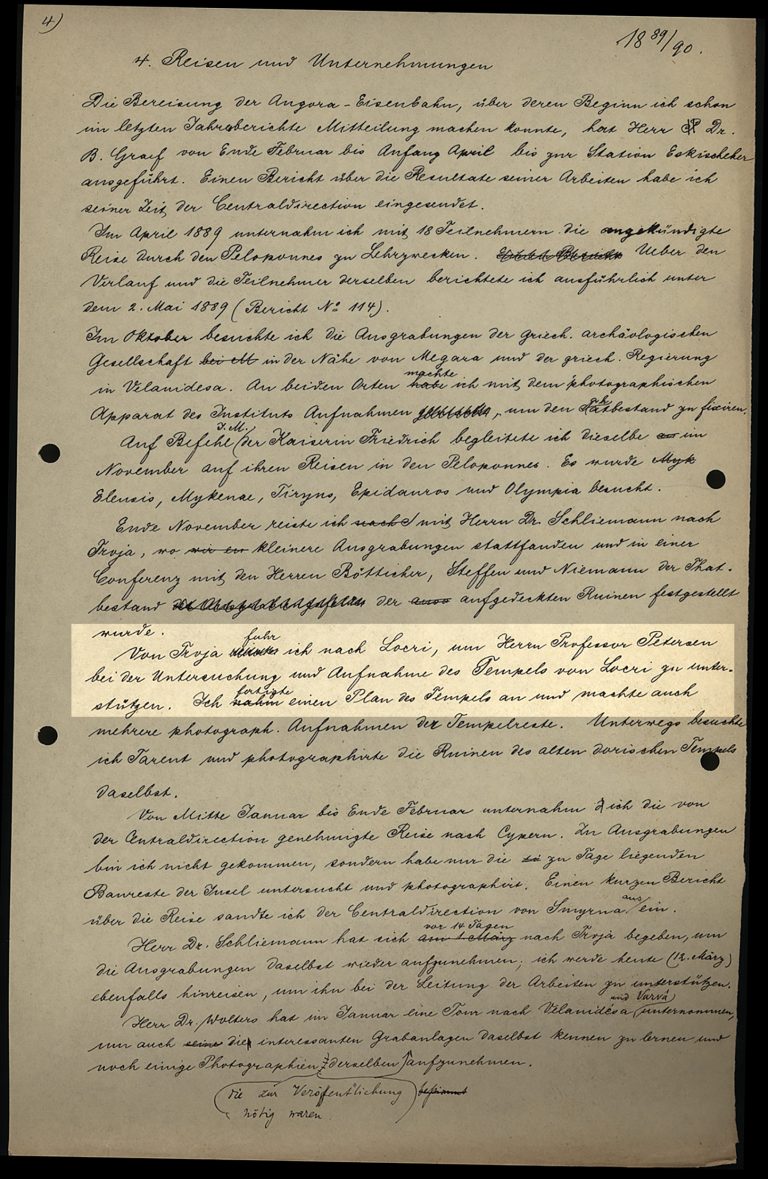 4)
18 89/90.
4. Reisen und Unternehmungen
Die Bereisung der Angora-Eisenbahn, über deren Beginn ich schon
im letzten Jahresberichte Mitteilung machen konnte, hat Herr Dr.
B. Graef von Ende Februar bis Anfang April bis zur Station Eskischeher
ausgeführt. Einen Bericht über die Resultate seiner Arbeiten habe ich
seiner Zeit der Centraldirection eingesendet.
Im April 1889 unternahm ich mit 18 Teilnehmern die angekündigte
Reise durch den Peloponnes zu Lehrzwecken. Ueber den
Verlauf und die Teilnehmer derselben berichtete ich ausführlich unter
dem 2. Mai 1889 (Bericht No 114).
Im Oktober besuchte ich die Ausgrabungen der griech. archäologischen
Gesellschaft bei M in der Nähe von Megara und der griech. Regierung
machte
in Velanidesa. An beiden Orten habe ich mit dem photographischen
Apparat des Instituts Aufnahmen, um den Thatbestand zu fixiren.
I. M.
Auf Befehl der Kaiserin Friedrich begleitete ich dieselbe im
November auf ihren Reisen in den Peloponnes. Es wurde Myk
Eleusis, Mykenae, Tiryns, Epidauros und Olympia besucht.
Ende November reiste ich nach mit Herrn Dr. Schliemann nach
Troja, wo wir en kleinere Ausgrabungen stattfanden und in einer
Conferenz mit den Herren Bötticher, Steffen und Niemann der That-
bestand der ausg aufgedeckten Ruinen festgestellt
wurde.
fuhr
Von Troja ich nach Locri, um Herrn Professor Petersen
bei der Untersuchung und Aufnahme des Tempels von Locri zu unter-
fertigte
stützen. Ich nahm einen Plan des Tempels an und machte auch
mehrere photograph. Aufnahmen der Tempelreste. Unterwegs besuchte
ich Tarent und photographirte die Ruinen des alten dorischen Tempels
daselbst.
Von Mitte Januar bis Ende Februar unternahm ich die von
der Centraldirection genehmigte Reise nach Cypern. Zu Ausgrabungen
bin ich nicht gekommen, sondern habe nur die zu zu Tage liegenden
Baureste der Insel untersucht und photographirt. Einen kurzen Bericht
aus
über die Reise sandte ich der Centraldirection von Smyrna ein.
vor 14 Tagen
Herr Dr. Schliemann hat sich am 1 März nach Troja begeben, um
die Ausgrabungen daselbst wieder aufzunehmen; ich werde heute (12. März)
ebenfalls hinreisen, um ihn bei der Leitung der Arbeiten zu unterstützen.
und Varvá
Herr Dr. Wolters hat im Januar eine Tour nach Velanidésa unternommen,
um auch seine die interessanten Grabanlagen daselbst kennen zu lernen und
noch einige Photographien derselben aufzunehmen.
die zur Veröffentlichung bestimmt
nötig waren